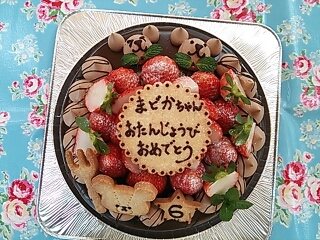 まどかちゃん
おたんじょうび
おめでとう
6